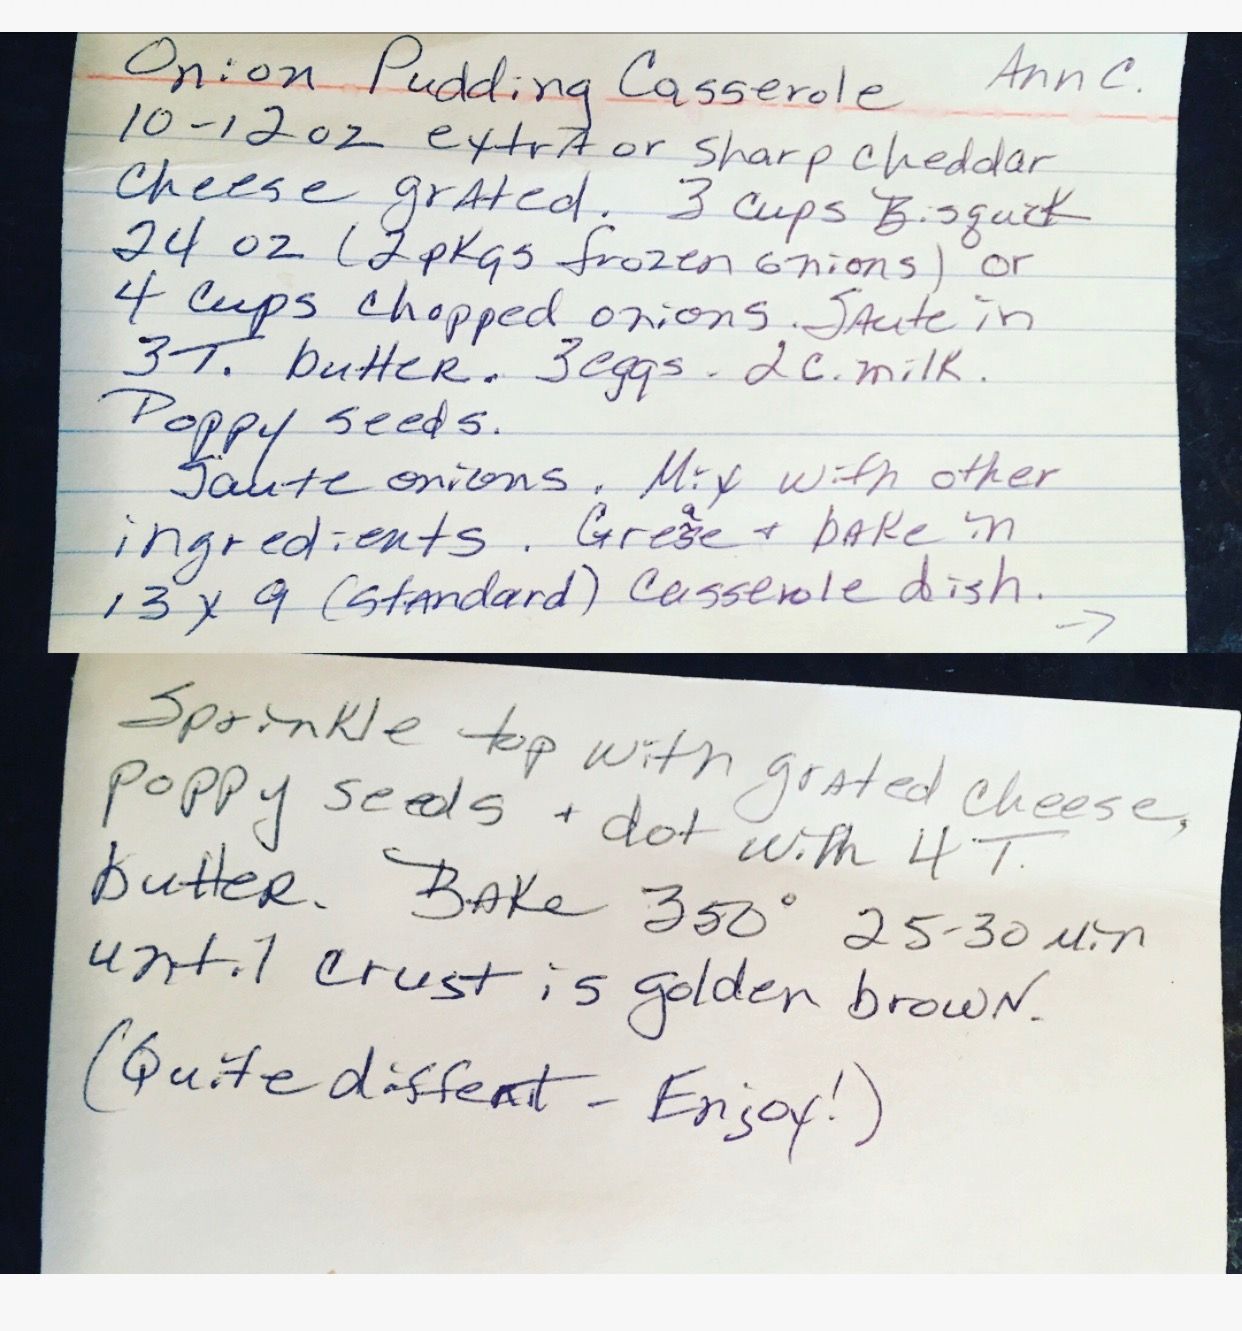 Onion Pudding Casserole Ann C.
10-12 oz extrA or sharp cheddar
cheese grAted. 3 cups Bisquick
24 oz (2 pkgs frozen onions) or
4 cups chopped onions. SAute in
3 T. butter. 3 eggs. 2 c. milk.
Poppy seeds.
Saute onions. Mix with other
ingredients. Grease + bAke in
13 x 9 (stAndard) casserole dish.
->
Sprinkle top with grAted cheese,
poppy seeds + dot with 4 T.
butter. BAke 350° 25-30 Min
until crust is golden browN.
(Quite diffent - Enjoy!)